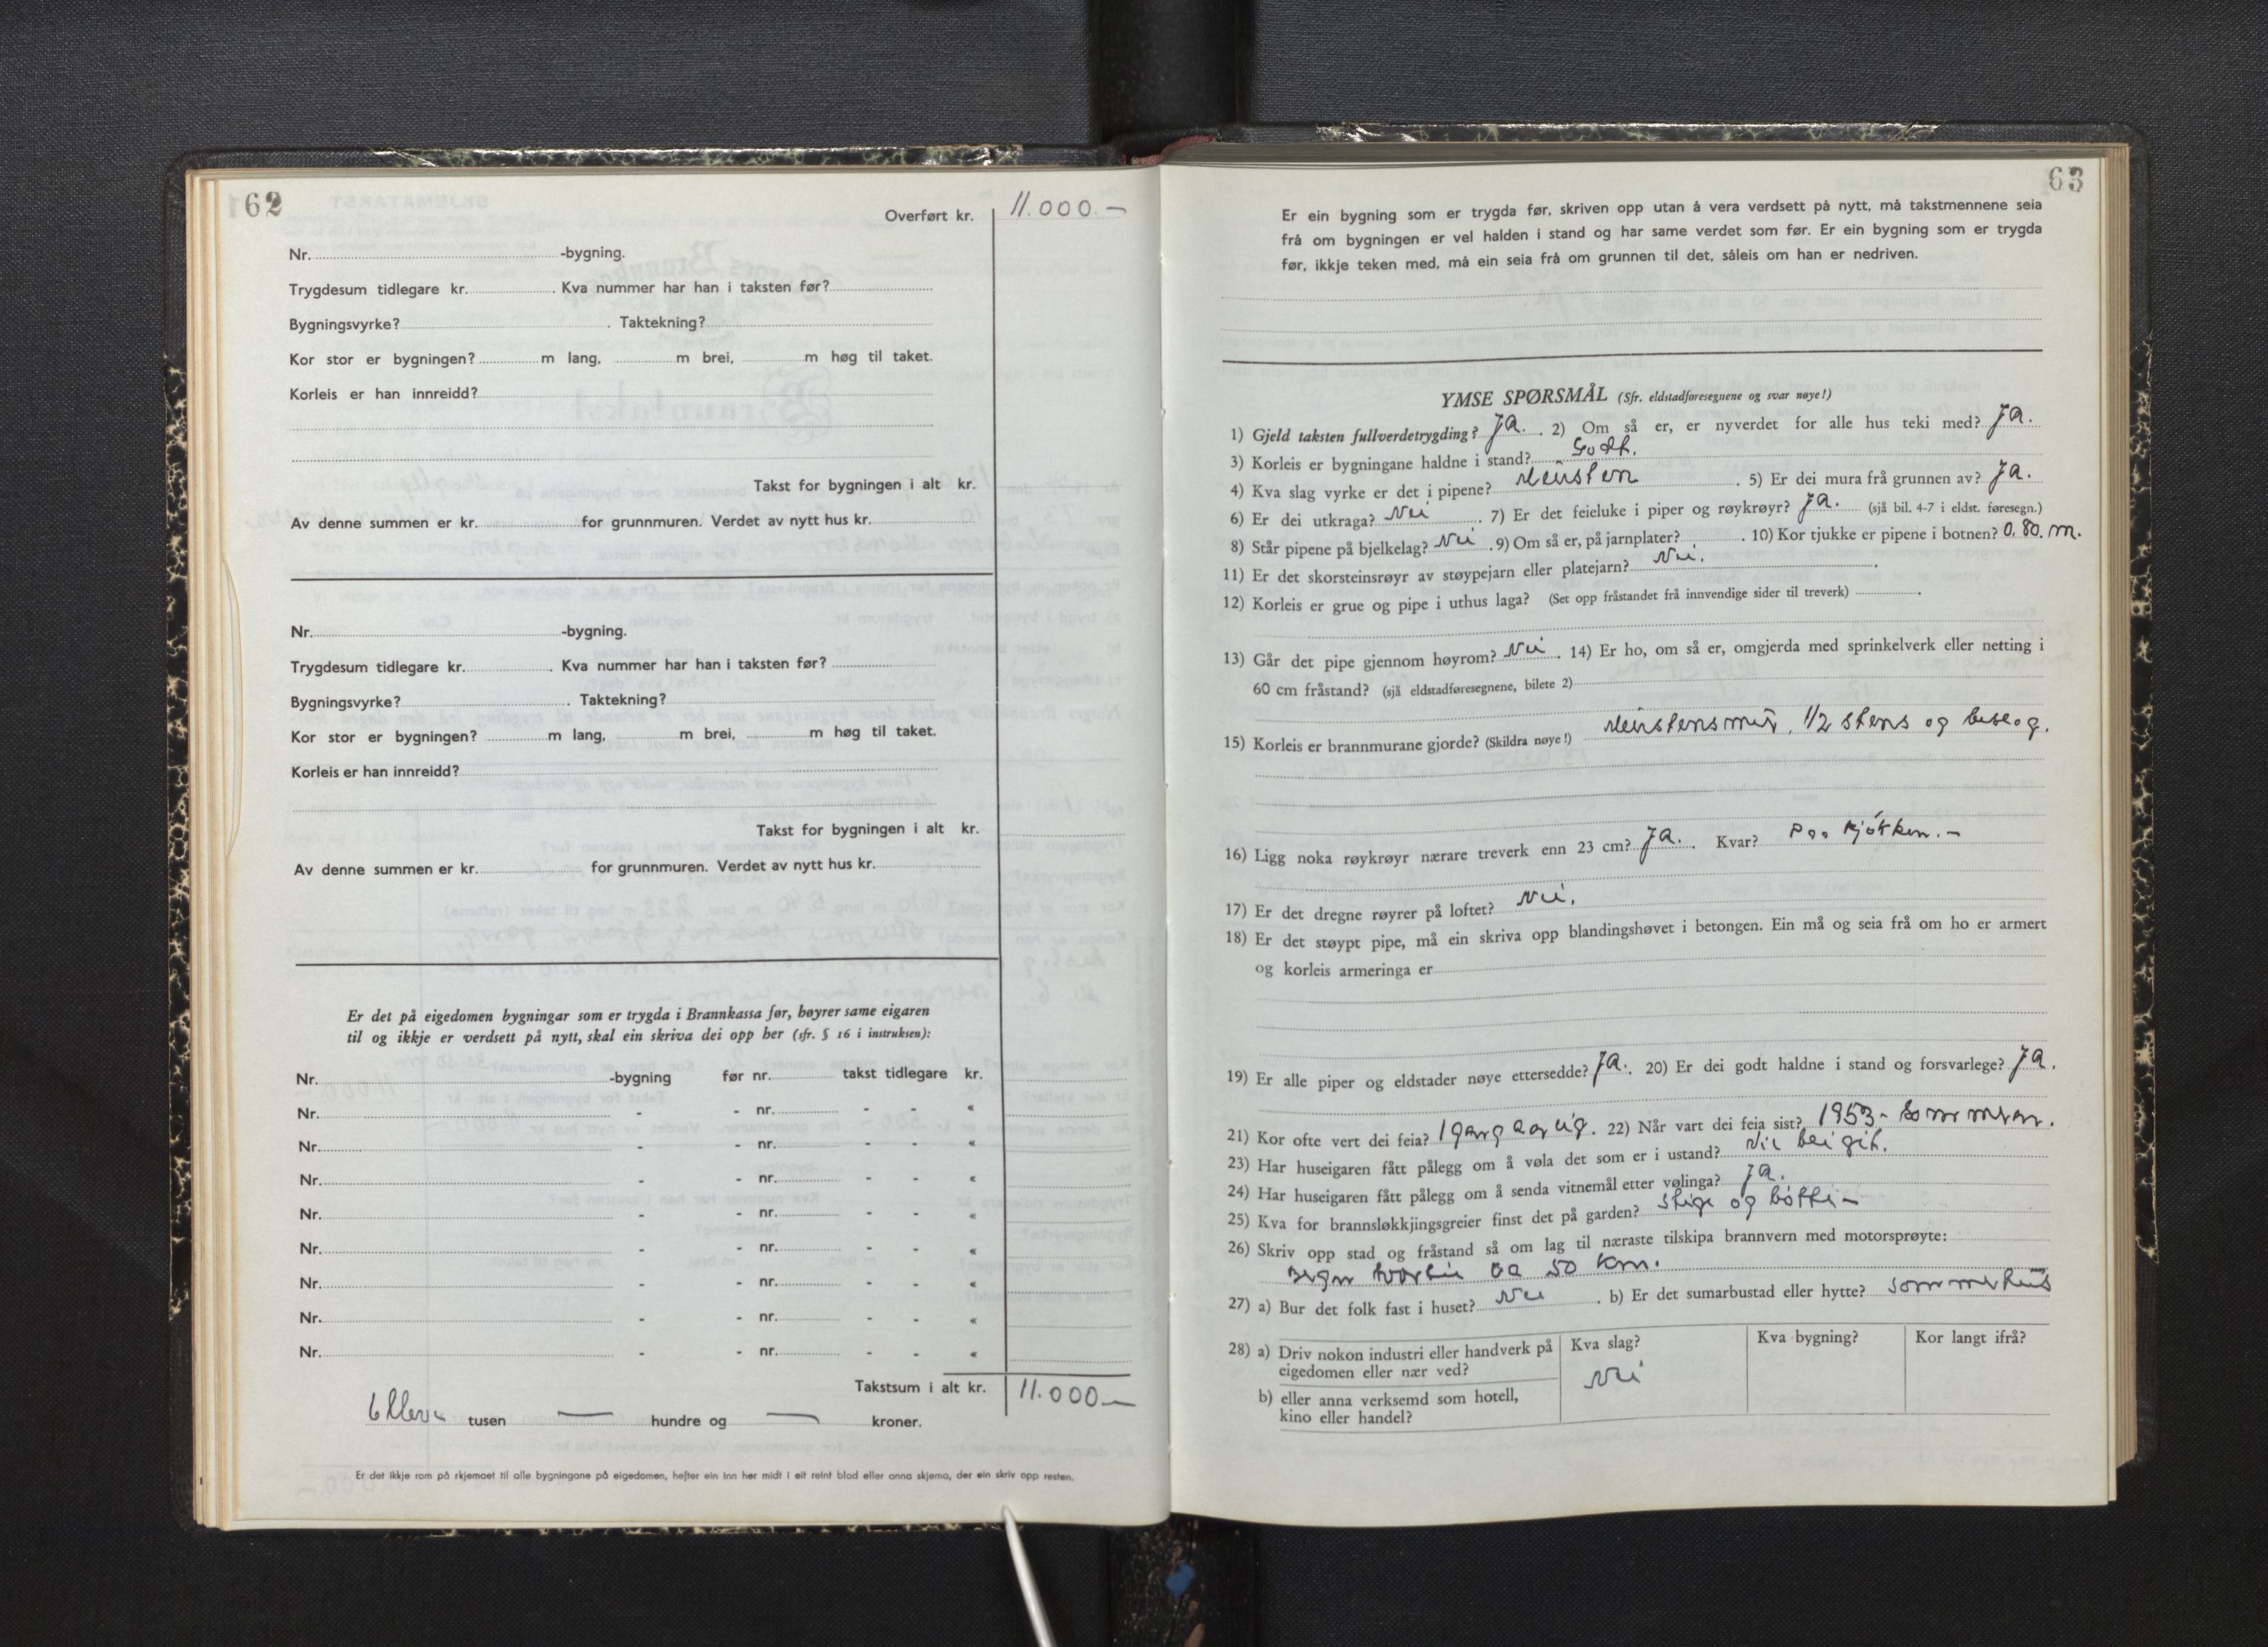 62
Overført kr. 11.000.—
Nr. -bygning.
Trygdesum tidlegare kr. . Kva nummer har han i taksten før?
Bygningsvyrke? . Taktekning?
Kor stor er bygningen? m lang, m brei, m høg til taket.
Korleis er han innreidd?
Takst for bygningen i alt kr.
Av denne summen er kr. for grunnmuren. Verdet av nytt hus kr.
Nr. -bygning.
Trygdesum tidlegare kr. . Kva nummer har han i taksten før?
Bygningsvyrke? . Taktekning?
Kor stor er bygningen? m lang, m brei, m høg til taket.
Korleis er han innreidd?
Takst for bygningen i alt kr.
Av denne summen er kr. for grunnmuren. Verdet av nytt hus kr.
Er det på eigedomen bygningar som er trygda i Brannkassa før, høyrer same eigaren
til og ikkje er verdsett på nytt, skal ein skriva dei opp her (sfr. § 16 i instruksen):
Nr. -bygning før nr. takst tidlegare kr.
Nr. - - nr. - - «
Nr. - - nr. - - «
Nr. - - nr. - - «
Nr. - - nr. - - «
Nr. - - nr. - - «
Nr. - - nr. - - «
Nr. - - nr. - - «
Nr. - - nr. - - «
Takstsum i alt kr. 11.000—
Elleve tusen — hundre og — kroner.
Er det ikkje rom på skjemaet til alle bygningane på eigedomen, hefter ein inn her midt i eit reint blad eller anna skjema, der ein skriv opp resten.
63
Er ein bygning som er trygda før, skriven opp utan å vera verdsett på nytt, må takstmennene seia
frå om bygningen er vel halden i stand og har same verdet som før. Er ein bygning som er trygda
før, ikkje teken med, må ein seia frå om grunnen til det, såleis om han er nedriven.
YMSE SPØRSMÅL (Sfr. eldstadføresegnene og svar nøye!)
1) Gjeld taksten fullverdetrygding? Ja. . 2) Om så er, er nyverdet for alle hus teki med? Ja.
3) Korleis er bygningane haldne i stand? Godt.
4) Kva slag vyrke er det i pipene? Meursten . 5) Er dei mura frå grunnen av? Ja.
6) Er dei utkraga? Nei . 7) Er det feieluke i piper og røykrøyr? Ja. (sjå bil. 4-7 i eldst. føresegn.)
8) Står pipene på bjelkelag? Nei . 9) Om så er, på jarnplater? . 10) Kor tjukke er pipene i botnen? 0.80. m.
11) Er det skorsteinsrøyr av støypejarn eller platejarn? Nei. .
12) Korleis er grue og pipe i uthus laga? (Set opp fråstandet frå innvendige sider til treverk) .
13) Går det pipe gjennom høyrom? Nei . 14) Er ho, om så er, omgjerda med sprinkelverk eller netting i
60 cm fråstand? (sjå eldstadføresegnene, bilete 2)
15) Korleis er brannmurane gjorde? (Skildra nøye!) 1/2 stens og
16) Ligg noka røykrøyr nærare treverk enn 23 cm? Ja. . Kvar? Paa kjøkken.—
17) Er det dregne røyrer på loftet? Nei.
18) Er det støypt pipe, må ein skriva opp blandingshøvet i betongen. Ein må og seia frå om ho er armert
og korleis armeringa er
19) Er alle piper og eldstader nøye ettersedde? Ja. . 20) Er dei godt haldne i stand og forsvarlege? Ja.
21) Kor ofte vert dei feia? 1 gang aarlig. 22) Når vart dei feia sist? 1953- Sommeren.
23) Har huseigaren fått pålegg om å vøla det som er i ustand?
24) Har huseigaren fått pålegg om å senda vitnemål etter vølinga? Ja.
25) Kva for brannsløkkjingsgreier finst det på garden? Stige og bøtte—
26) Skriv opp stad og fråstand så om lag til næraste tilskipa brannvern med motorsprøyte:
ca 50 km.
27) a) Bur det folk fast i huset? Nei . b) Er det sumarbustad eller hytte? Sommerhus
28) a) Driv nokon industri eller handverk på eigedomen eller nær ved? Kva slag? Kva bygning? Kor langt ifrå?
Nei
b) eller anna verksemd som hotell, kino eller handel?